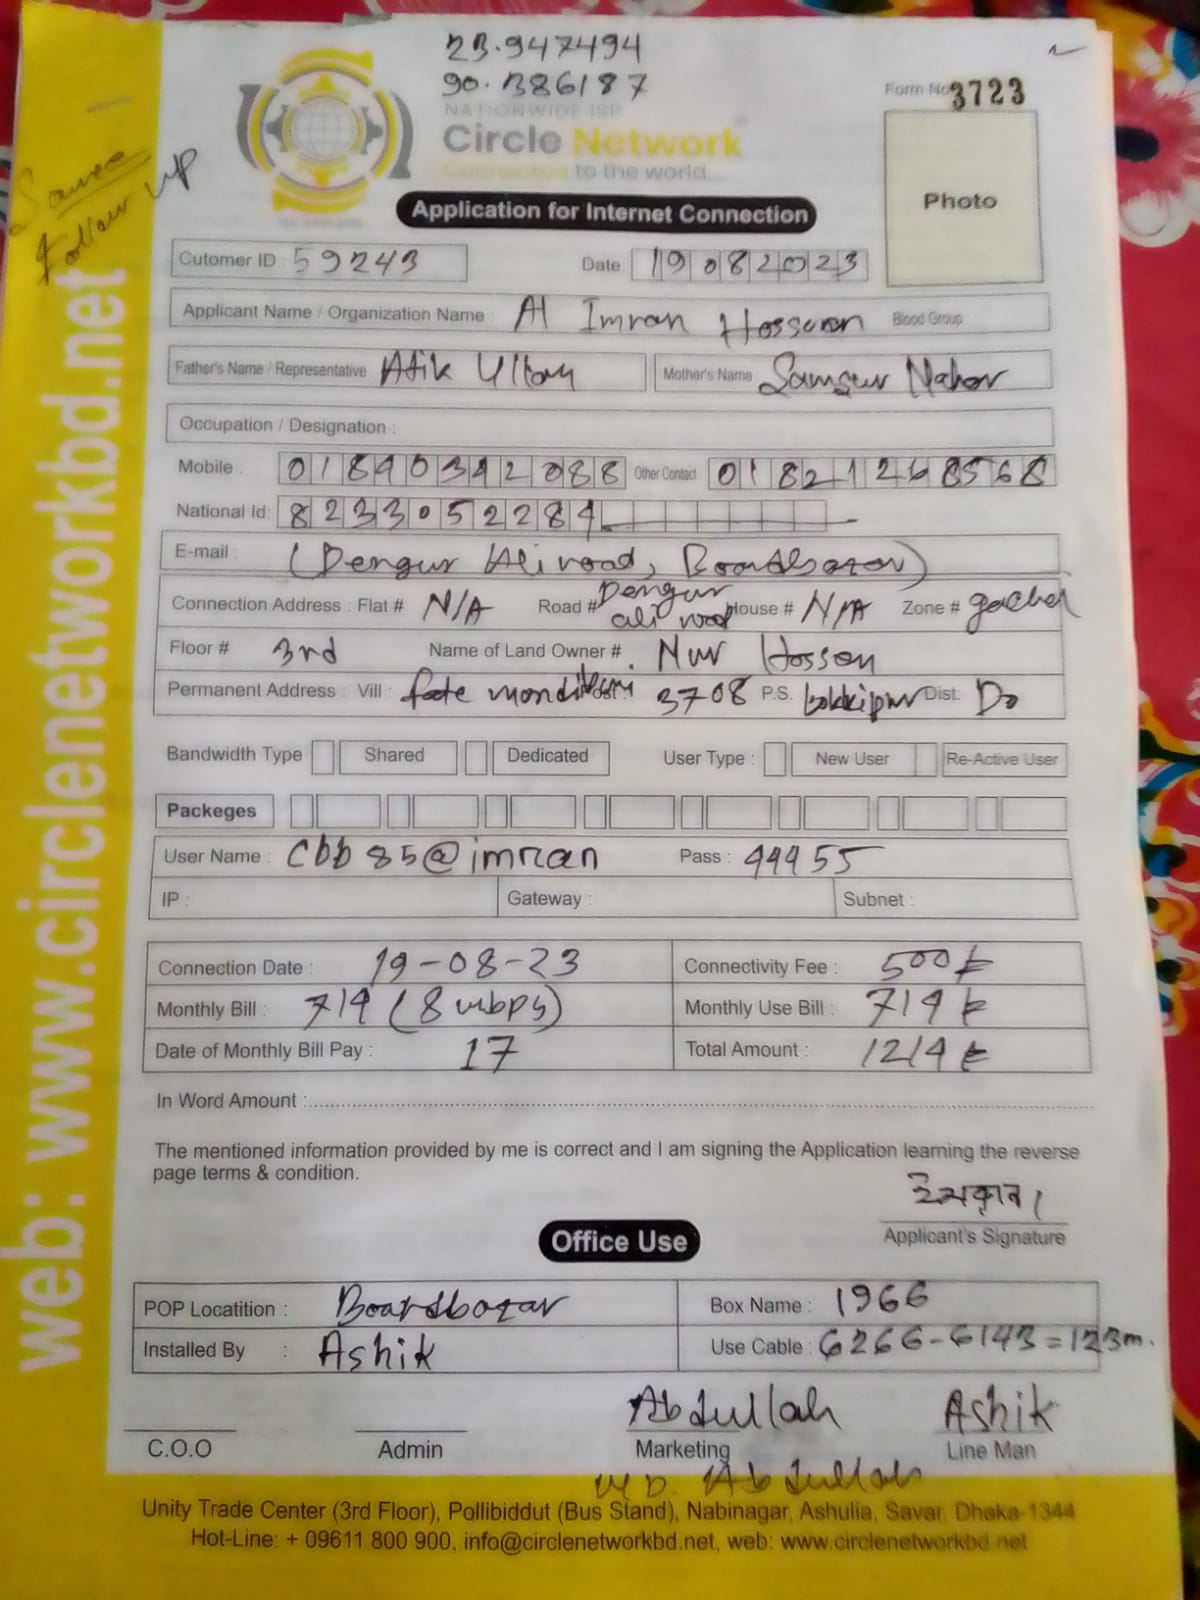 23.947494
90.386187
NATIONWIDE ISP
Circle Network
Connected to the world...
Form No 3723
Photo
Follow UP
Application for Internet Connection
Cutomer ID : 59243
Date: 19082023
Applicant Name / Organization Name : Al Imran Hossen Blood Group
Father's Name / Representative Atik Ullah Mother's Name Samsur Nahar
Occupation / Designation :
Mobile : 01840342088 Other Contact 01821268568
National Id: 8233052284
E-mail : (Dengur Ali road, Boardbazar)
Connection Address : Flat # N/A Road # Dengur ali road House # N/A Zone #
Floor # 3rd Name of Land Owner # Nur Hossen
Permanent Address : Vill : 3708 P.S. Dist: Do
Bandwidth Type Shared Dedicated User Type : New User Re-Active User
Packeges
User Name : cbb85@imran Pass : 44455
IP : Gateway : Subnet :
Connection Date : 19-08-23 Connectivity Fee : 500৳
Monthly Bill : 714 (8 mbps) Monthly Use Bill : 714৳
Date of Monthly Bill Pay : 17 Total Amount : 1214৳
In Word Amount :
The mentioned information provided by me is correct and I am signing the Application learning the reverse
page terms & condition.
ইমরান।
Applicant's Signature
Office Use
POP Locatition : Boardbazar Box Name : 1966
Installed By : Ashik Use Cable : 6266-6143=123m.
Abdullah Ashik
C.O.O Admin Marketing Line Man
MD. Abdullah
Unity Trade Center (3rd Floor), Pollibiddut (Bus Stand), Nabinagar, Ashulia, Savar, Dhaka-1344
Hot-Line: + 09611 800 900, info@circlenetworkbd.net, web: www.circlenetworkbd.net
web: www.circlenetworkbd.net